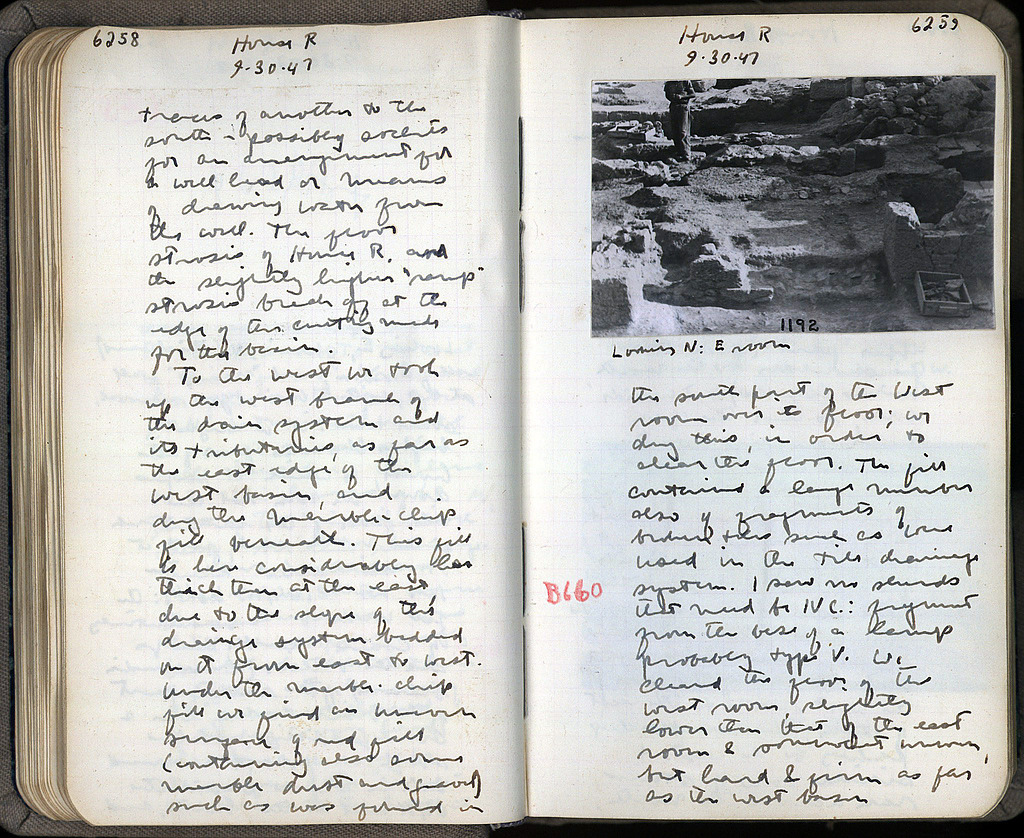 6258
House R
9.30.47
traces of another to the
south - possibly sockets
for an arrangement for
a well head or means
of drawing water from
the well. The floor
strosis of House R, and
the slightly higher "ramp"
strosis break off at the
edge of the cutting made
for the basin.
To the west we took
up the west branch of
the drain system and
its tributaries, as far as
the east edge of the
west basin, and
dug the marble-chip
fill beneath. This fill
is here considerably less
thick than at the east,
due to the slope of the
drainage system bedded
on it from east to west.
Under the marble-chip
fill we find an uneven
of red fill
(containing also some
marble dust and gravel)
such as was found in
6259
House R
9.30.47
1192
Looking N: E room
the south part of the West
room over its floor; we
dug this, in order, to
clear the floor. The fill
contained a large number
also of fragments of
broken tiles such as were
used in the tile drainage
system. I saw no sherds
B660
that need be IV C.: fragment
from the base of a lamp
probably type V. We
cleared the floor of the
west room, slightly
lower than that of the east
room & somewhat uneven,
but hard & firm as far
as the west basin